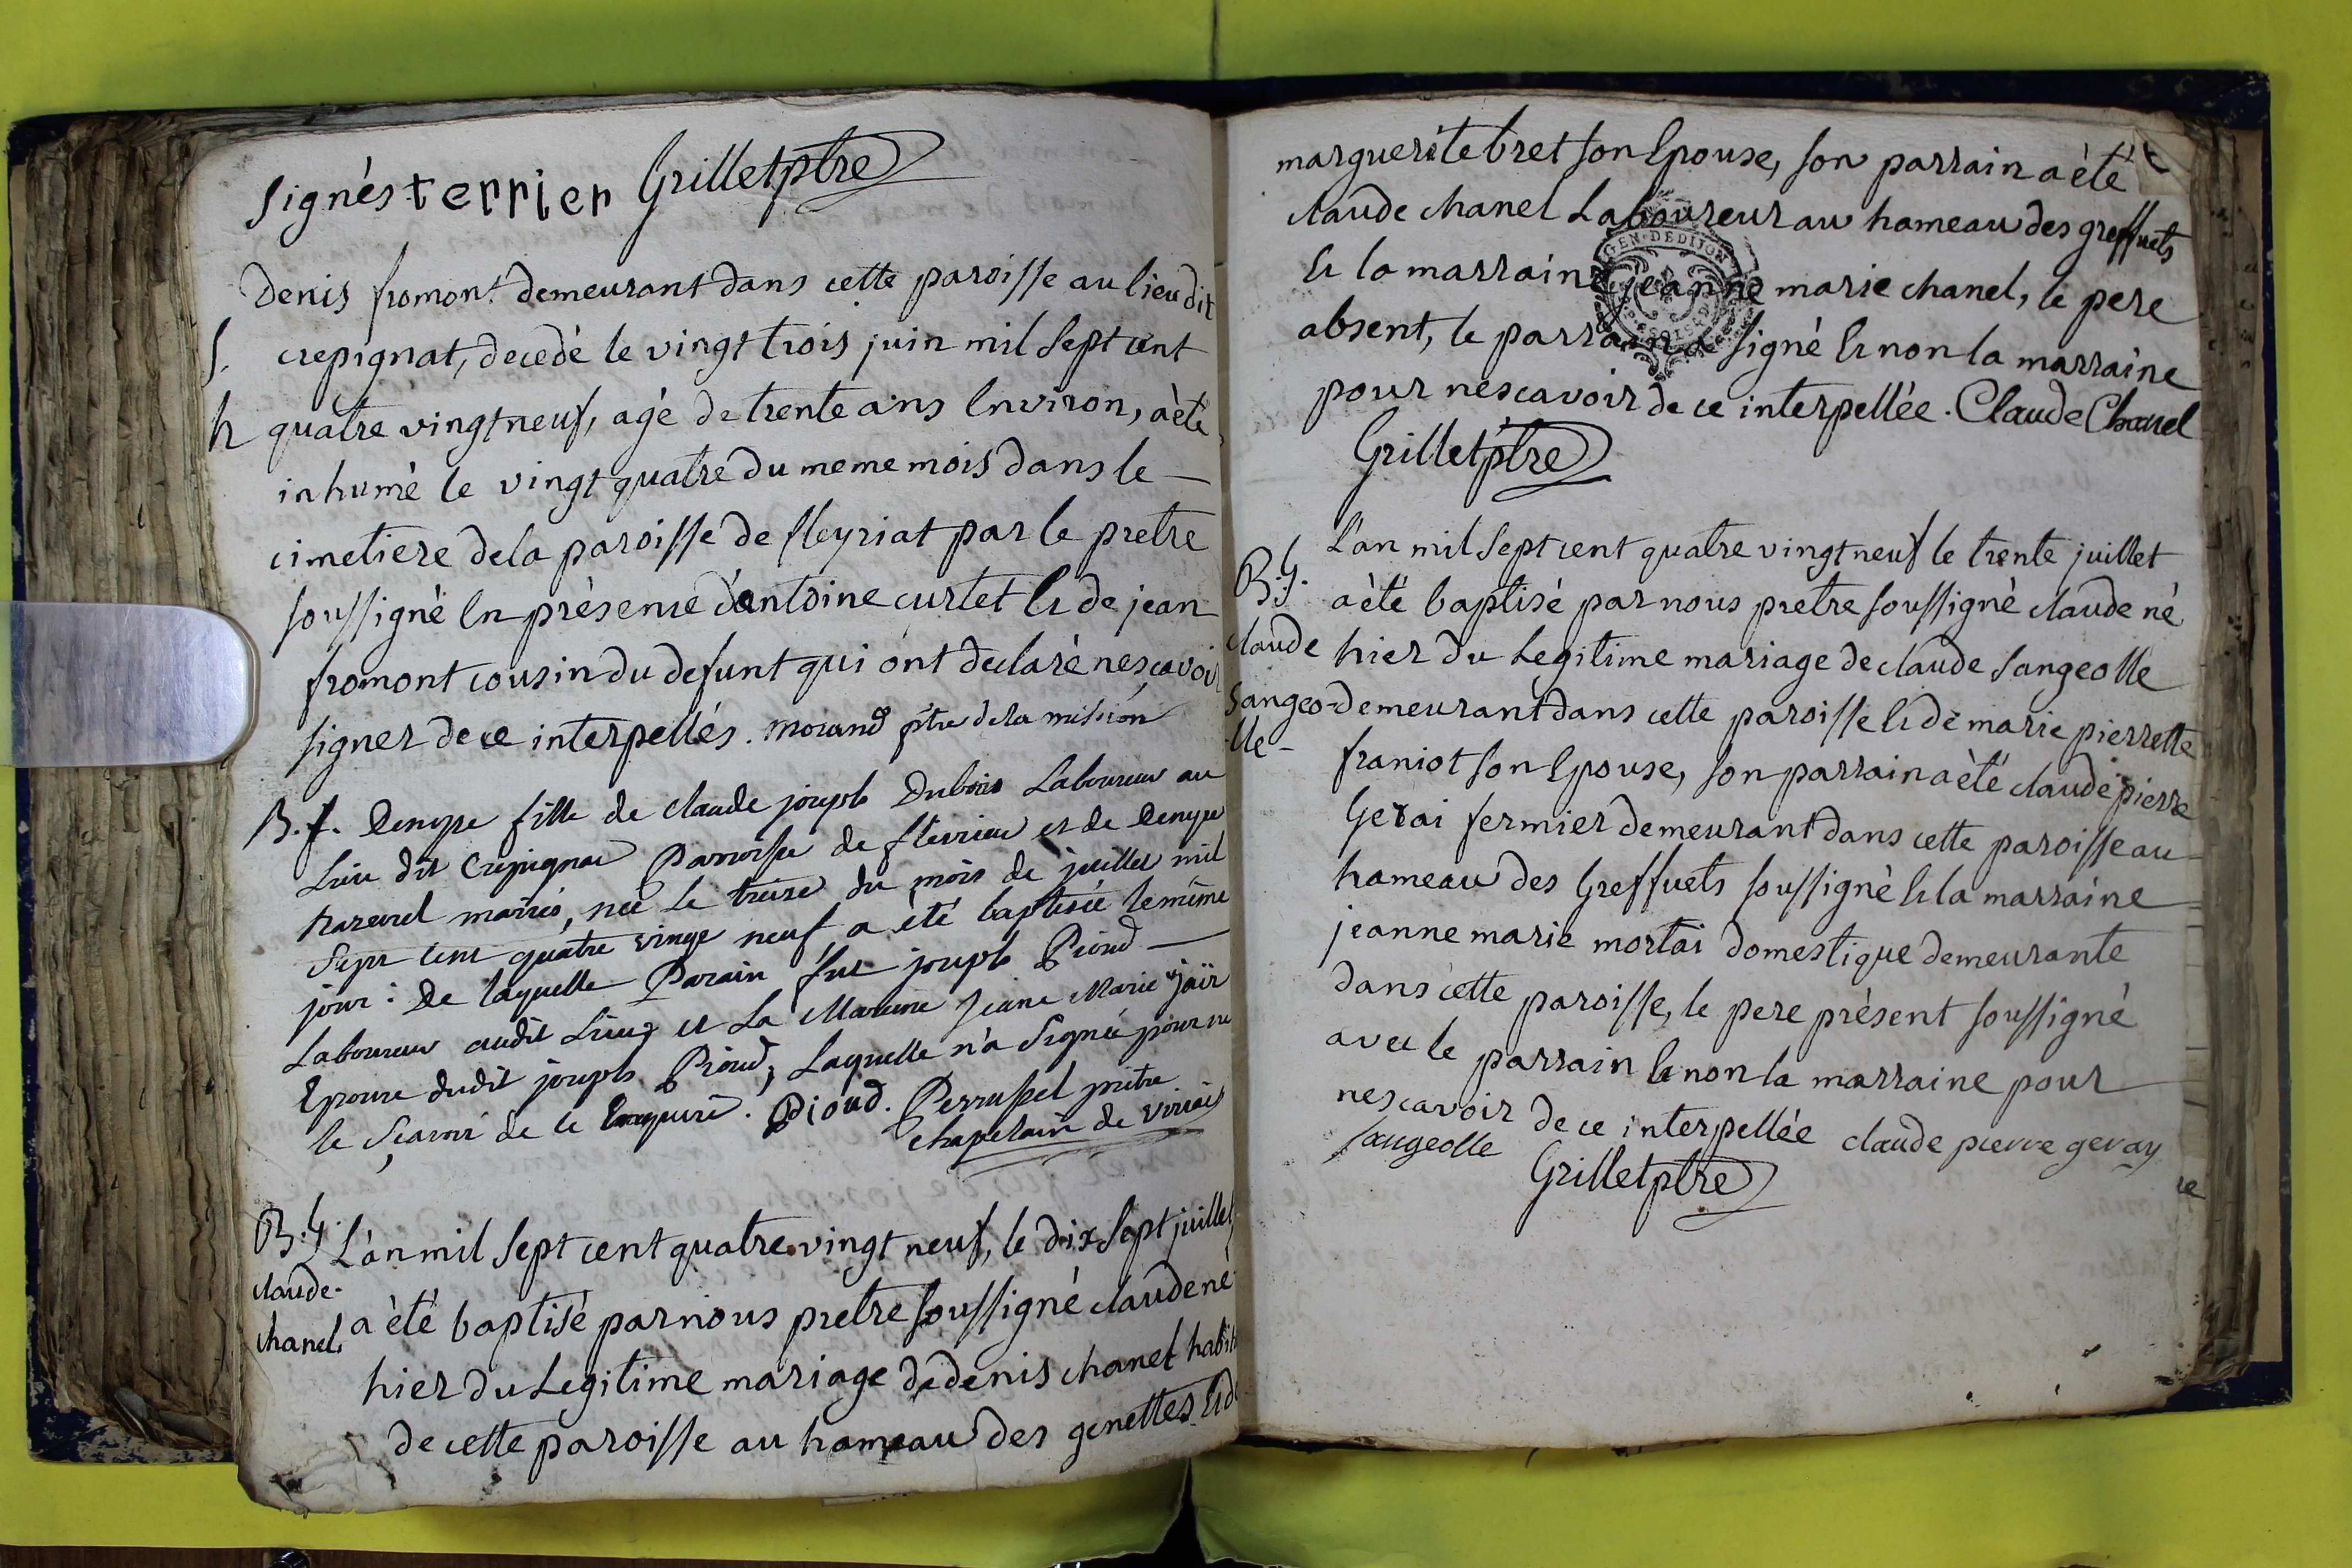 signés terrier Grillet ptre
Denis fromont demeurant dans cette paroisse au lieu dit
S. crepignat, decedé le vingt trois juin mil sept cent
h quatre vingt neuf, agé de trente ans environ, a èté
inhumé le vingt quatre du meme mois dans le
cimetiere de la paroisse de fleyriat par le pretre
soussigné en présence d'antoine curtet & de jean
fromont cousin du defunt qui ont declaré ne scavoir
signer de ce interpellés. morand ptre de la mission
B. f. Denyse fille de claude joseph Dubois Laboureur au
Lieu dit Crepignat Parroisse de fleuriat et de Denyse
mariés, née le treize du mois de juillet mil
Sept cent quatre vingt neuf a été baptisée le même
jour : De laquelle Parain fut joseph Pioud
Laboureur audit Lieu, et La Maraine Jeane Marie jair
Epouse dudit joseph Pioud, Laquelle n'a Signée pour ne
le Sçavoir de ce enquise. Pioud. Perrussel prêtre
chapelain de viriat
B. G. L'an mil sept cent quatre vingt neuf, le dix sept juillet
claude a èté baptisé par nous pretre soussigné claude né
chanel hier du Legitime mariage de denis chanel
de cette paroisse au hameau des genettes & de
marguerite bret son Epouse, son parrain a èté
claude chanel Laboureur au hameau des greffuets
& la marraine jeanne marie chanel, le pere
absent, le parrain a signé & non la marraine
pour ne scavoir de ce interpellée. Claude Chanel
Grillet ptre
GEN. DE DIJON
L'an mil sept cent quatre vingt neuf le trente juillet
B. G. a èté baptisé par nous pretre soussigné claude né
claude hier du Legitime mariage de claude Sangeolle
Sangeo= demeurant dans cette paroisse & de marie pierrette
lle- franiot son Epouse, son parrain a èté claude pierre
Gevai fermier demeurant dans cette paroisse au
hameau des Greffuets soussigné & la marraine
jeanne marie mortai domestique demeurante
dans cette paroisse, le pere présent soussigné
avec le parrain & non la marraine pour
ne scavoir de ce interpellée claude pierre gevay
sangeolle Grillet ptre